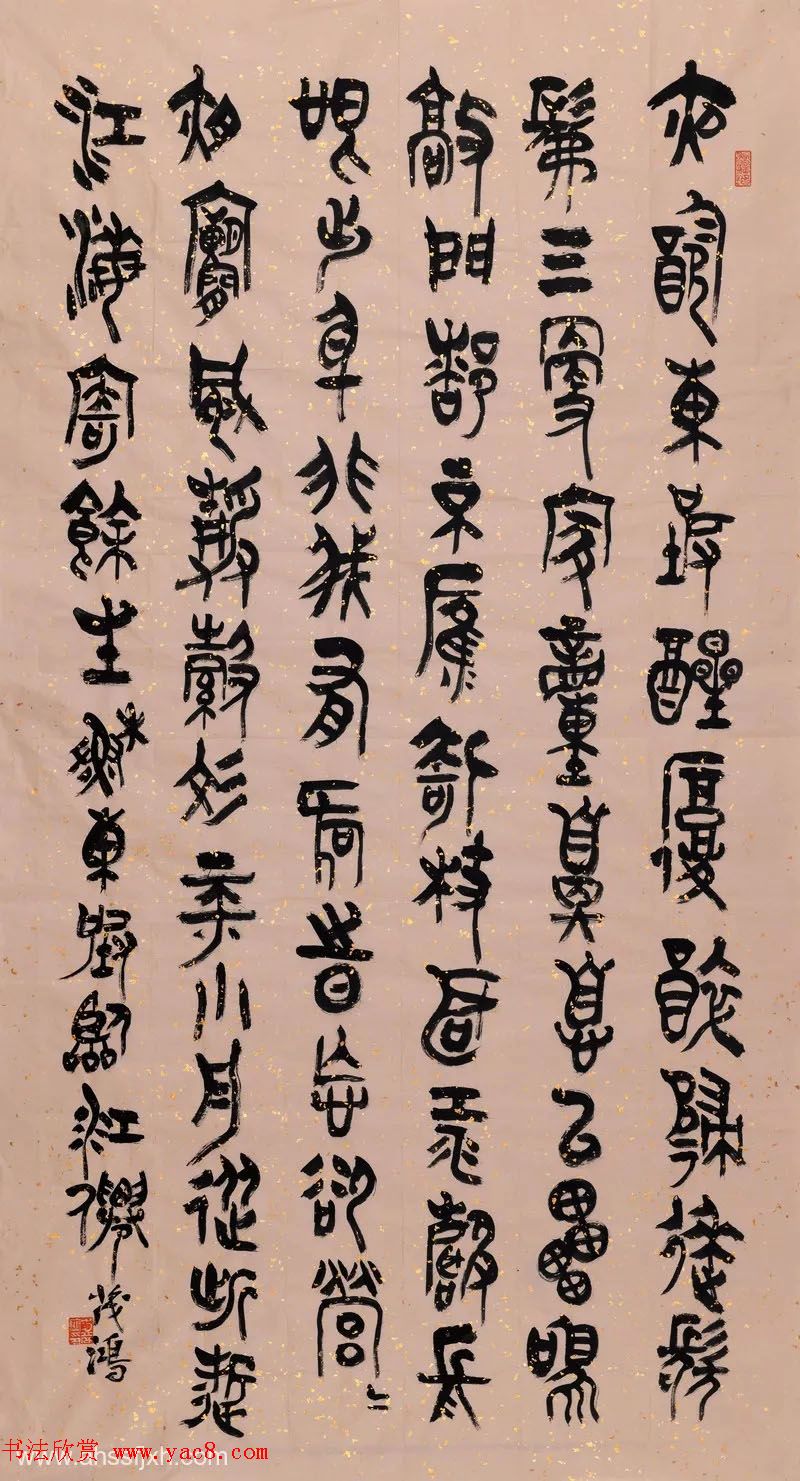 夜飲東坡醒復醉歸來髣
髴三更家童鼻息已雷鳴
敲門都不應倚杖聽江聲長
恨此身非我有何時忘卻營々
夜闌風靜縠紋平小舟從此逝
江海寄餘生蘇東坡臨江僊
茂鴻
书法欣赏 www.yac8.com